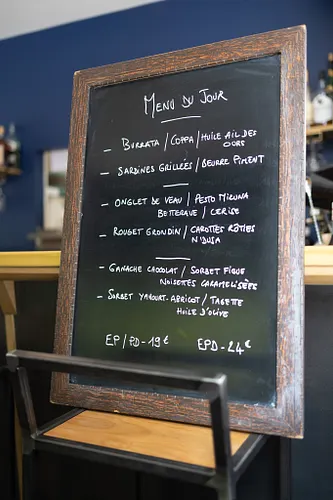 MENU DU JOUR
- BURRATA / COPPA / HUILE AIL DES
OURS
- SARDINES GRILLÉES / BEURRE PIMENT
- ONGLET DE VEAU / PESTO MIZUNA
BETTERAVE / CERISE
- ROUGET GRONDIN / CAROTTES RÔTIES
N'DUJA
- GANACHE CHOCOLAT / SORBET FIGUE
NOISETTES CARAMELISÉES
- SORBET YAHOURT-ABRICOT / TAGETTE
HUILE D'OLIVE
EP/PD - 19€ EPD - 24€